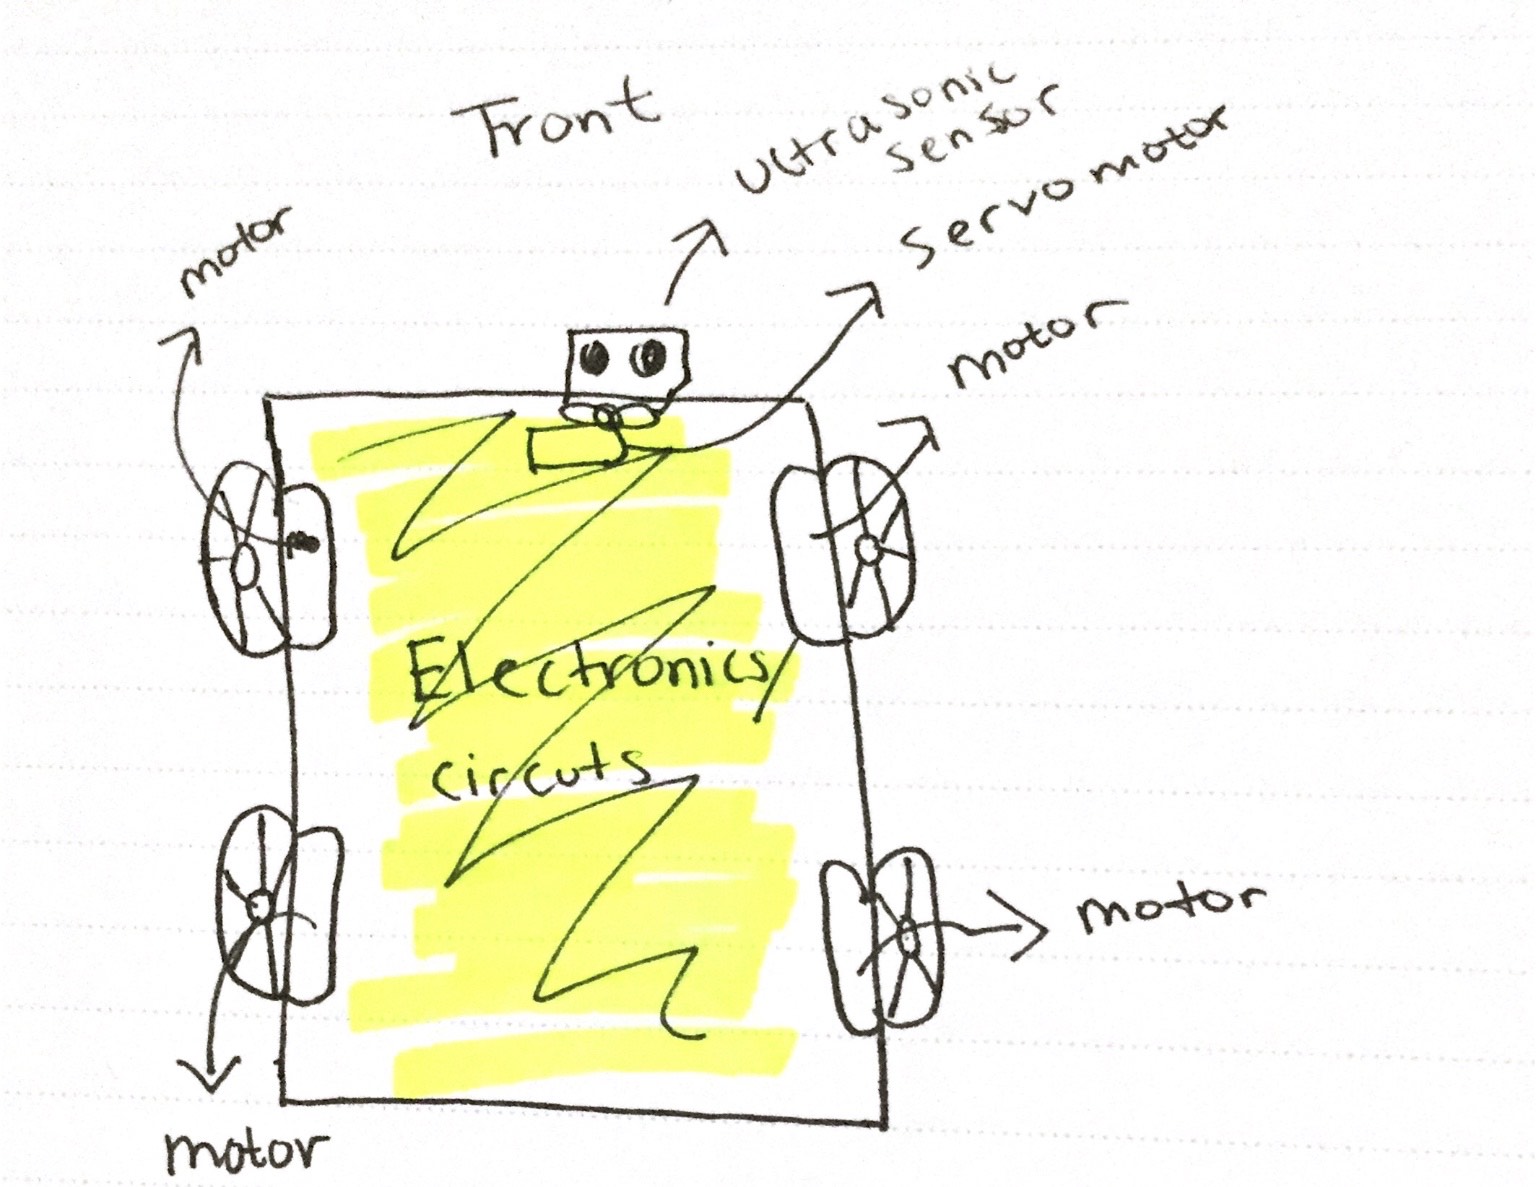 Front
Ultrasonic
sensor
Servo motor
motor
motor
Electronics/
circuts
motor
motor